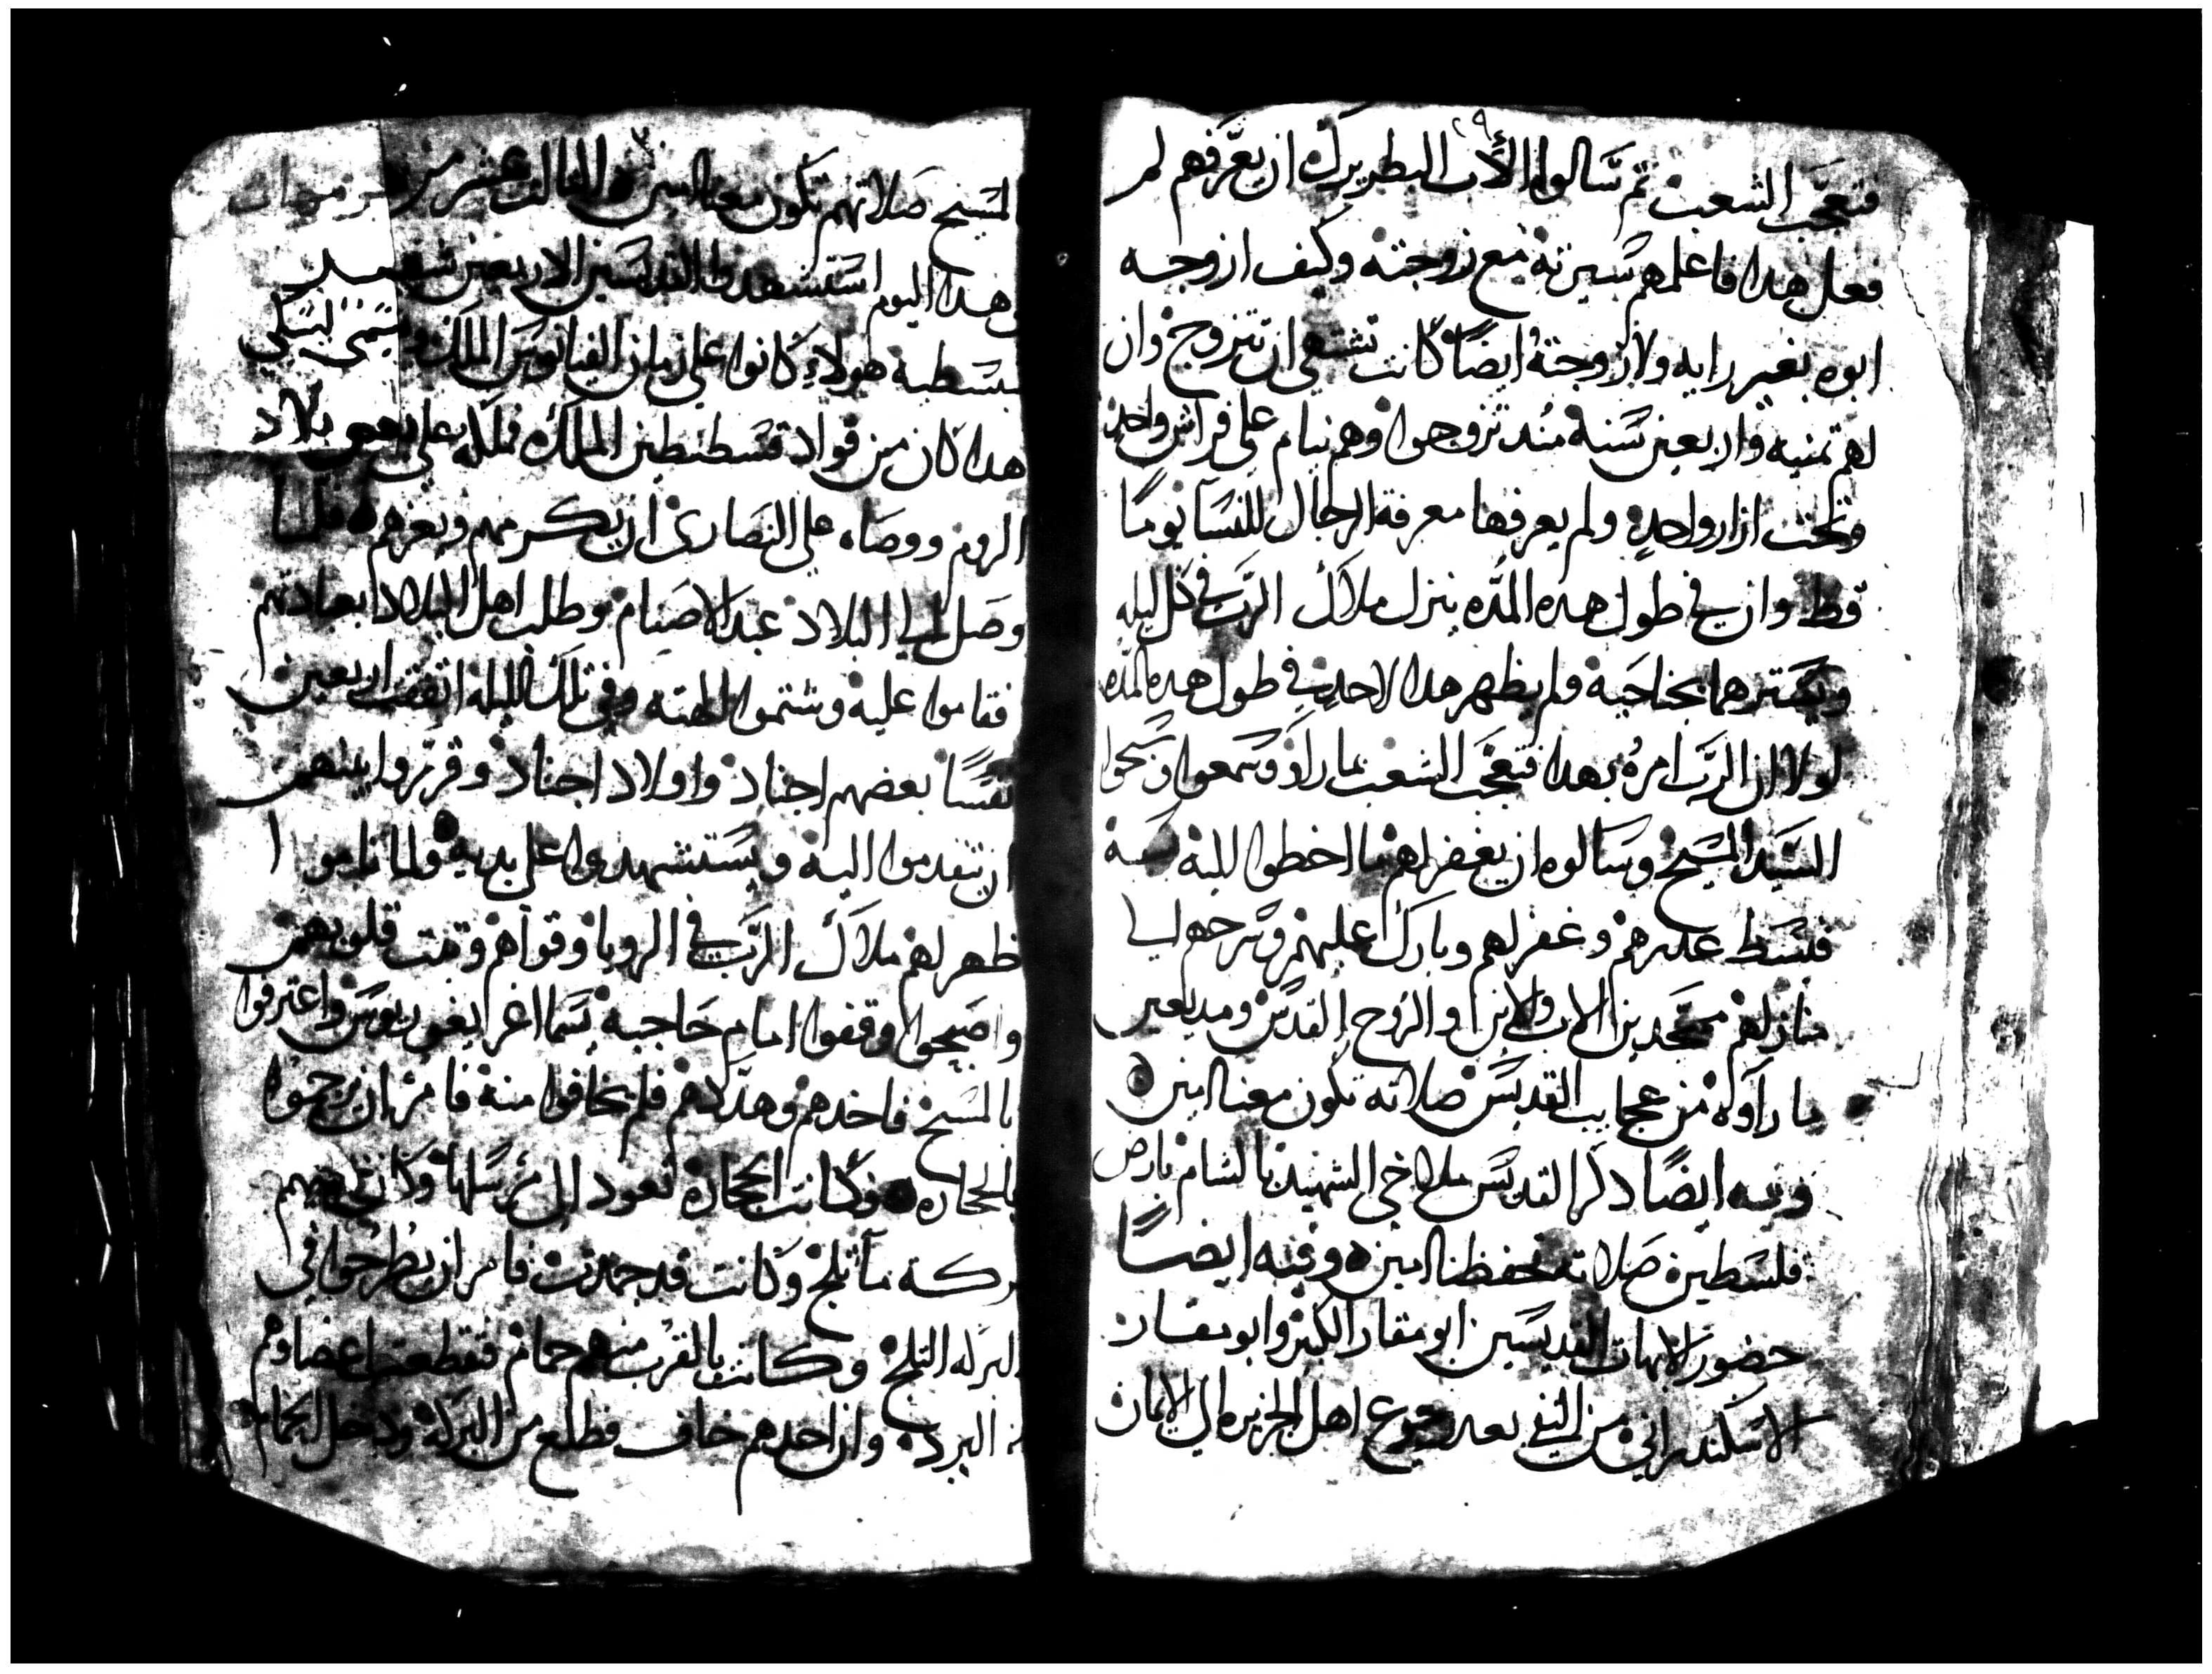 ٢٩
فتعجب الشعب ثم سالوا الأب البطريرك ان يعرفهم لم
فعل هدا فاعلمهم سيرته مع زوجته وكيف ازوجه
ابوه بغير رايه ولان زوجته ايضًا كانت تشتهي ان تتزوج وان
لهم تمنيه واربعين سنة مند تزوجوا وهم نيام على فراش واحد
وتحت ازار واحدٍ ولم يعرفها معرفة الرجال للنسا يومًا
قط وان في طول هده المده ينزل ملاك الرب في كل ليله
ويسترهما بجناحيه ولم يظهر هدا لاحد في طول هده المده
لولا ان الرب امره بهدا فتعجب الشعب بما راوا وسمعوا وسبحوا
السيد المسيح وسالوه ان يغفر لهم ما اخطوا اليه به
فبسط عدرهم وغفر لهم وبارك عليهم وسرحهم الي
منازلهم ممجدين الاب والابن والروح القدس ومديعين
ما راوه من عجايب القديس صلاته تكون معنا امين
وفيه ايضًا دكر القديس ملاخي الشهيد بالشام بارض
فلسطين صلاته تحفظنا امين وفيه ايضًا
حضور الابهات القديسين ابو مقار الكبير وابو مقار
الاسكندراني من النفي بعد رجوع اهل الجزيره الي الايمان
المسيح صلاتهم تكون معنا امين الثالث عشر من برمهات
في هدا اليوم استشهدوا القديسين الاربعين شهيد
بسبسطية هولاء كانوا على زمان الملك
هدا كان من قواد قسطنطين الملك فملكه على بلاد
الروم ووصاه على النصارى ان يكرمهم ويعزهم فلما
وصل الى البلاد عبد الاصنام وطلب اهل البلاد بعبادتهم
فقاموا عليه وشتموا الهته وفي تلك الليله اتفقت اربعين
نفسًا بعضهم اجناد واولاد اجناد وقرروا بينهم
ان يتقدموا اليه ويستشهدوا على يديه ولما ناموا
ظهر لهم ملاك الرب في الرويا وقواهم وثبت قلوبهم
واصبحوا وقفوا امام حاجبه واعترفوا
بالمسيح فاخدهم وهددهم فلم يخافوا منه فامر ان يرجموا
بالحجاره فكانت الحجاره تعود الى مرسلها وكان
بركة ما ثلج وكانت قد جمدت فامر ان يطرحوا في
البركه الثلج وكانت بالقرب منهم حمام فتقطعت اعضاوهم
من البرد وان احدهم خاف فطلع من البركة ودخل الحمام